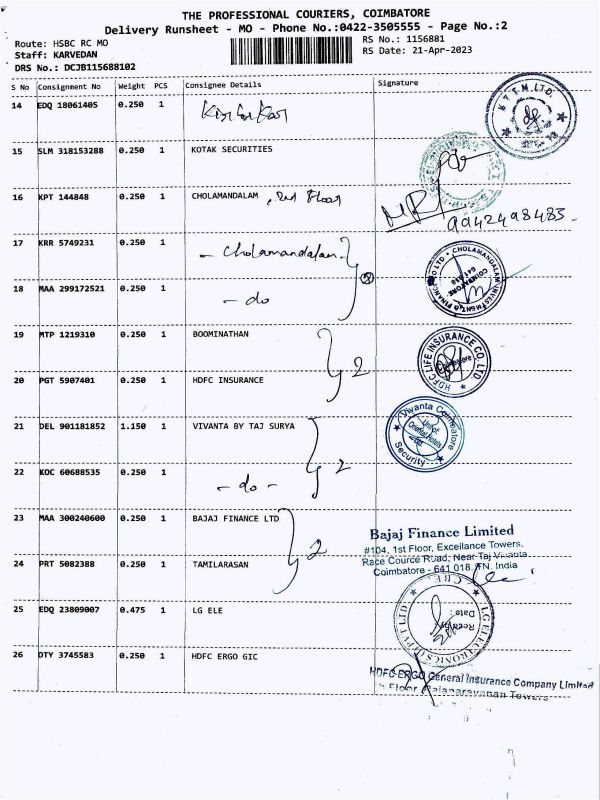 THE PROFESSIONAL COURIERS, COIMBATORE
Delivery Runsheet - MO - Phone No.:0422-3505555 - Page No.:2
Route: HSBC RC MO
RS No.: 1156881
Staff: KARVEDAN
RS Date: 21-Apr-2023
DRS No.: DCJB115688102
S No Consignment No Weight PCS Consignee Details Signature
14 EDQ 18061405 0.250 1
15 SLM 318153288 0.250 1 KOTAK SECURITIES
16 KPT 144848 0.250 1 CHOLAMANDALAM , 2nd Floor
9942498483
17 KRR 5749231 0.250 1 - Cholamandalam
CHOLAMANDALAM INVESTMENT & FINANCE CO LTD
COIMBATORE
641 018
18 MAA 299172521 0.250 1 - do
19 MTP 1219310 0.250 1 BOOMINATHAN 2
HDFC LIFE INSURANCE CO. LTD
20 PGT 5907401 0.250 1 HDFC INSURANCE
21 DEL 901181852 1.150 1 VIVANTA BY TAJ SURYA 2
Vivanta Coimbatore
Unit of
Oriental Hotels
Ltd.
Security
22 KOC 60688535 0.250 1 - do -
23 MAA 300240600 0.250 1 BAJAJ FINANCE LTD 2
Bajaj Finance Limited
#104, 1st Floor, Excellance Towers,
Race Cource Road, Near Taj Vivanta,
Coimbatore - 641 018. TN. India
24 PRT 5082388 0.250 1 TAMILARASAN
25 EDQ 23809007 0.475 1 LG ELE
LG ELECTRONICS (I) PVT LTD
Date :
26 OTY 3745583 0.250 1 HDFC ERGO GIC
HDFC ERGO General Insurance Company Limited
Floor Rajanarayanan Towers